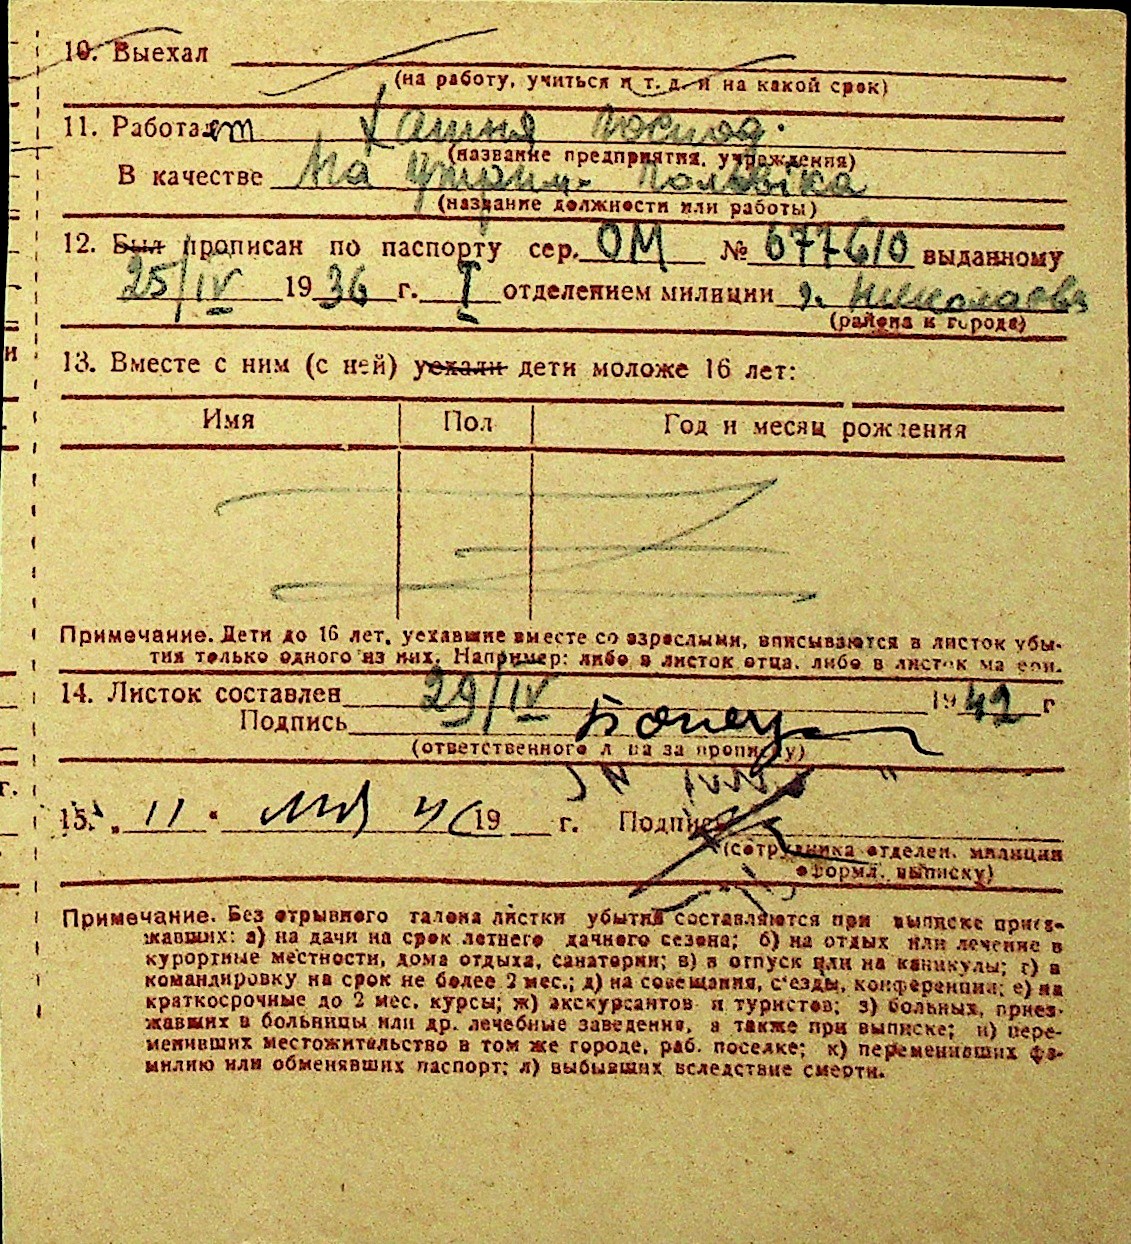 10. Выехал
(на работу, учиться и т. д. и на какой срок)
11. Работает Хатня господ.
(название предприятия, учреждения)
В качестве На утрим. чоловіка
(название должности или работы)
12. Был прописан по паспорту сер. ОМ № 677610 выданному
25/IV 1936 г. I отделением милиции г. Николаева
(района и города)
13. Вместе с ним (с ней) уехали дети моложе 16 лет:
Имя Пол Год и месяц рождения
Примечание. Дети до 16 лет, уехавшие вместе со взрослыми, вписываются в листок убы-
тия только одного из них. Например: либо в листок отца, либо в листок матери.
14. Листок составлен 29/IV 1942 г
Подпись
(ответственного лица за прописку)
15. „ 11 “ 19 г. Подпись
(сотрудника отделен. милиции
оформл. выписку)
Примечание. Без отрывного талона листки убытия составляются при выписке приез-
жавших: а) на дачи на срок летнего дачного сезона; б) на отдых или лечение в
курортные местности, дома отдыха, санатории; в) в отпуск или на каникулы; г) в
командировку на срок не более 2 мес.; д) на совещания, с'езды, конференции; е) на
краткосрочные до 2 мес. курсы; ж) экскурсантов и туристов; з) больных, приез-
жавших в больницы или др. лечебные заведения, а также при выписке; и) пере-
менивших местожительство в том же городе, раб. поселке; к) переменивших фа-
милию или обменявших паспорт; л) выбывших вследствие смерти.